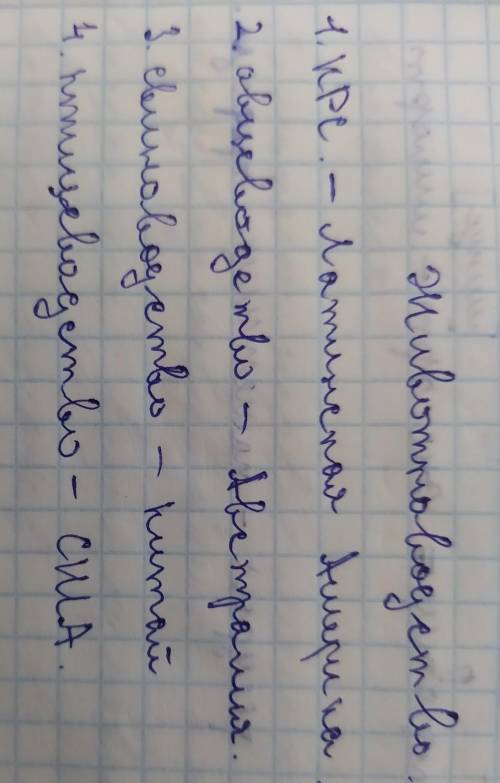 Животноводство.
1. КРС. - Латинская Америка
2. овцеводство - Австралия.
3. свиноводство - Китай
4. птицеводство - США.